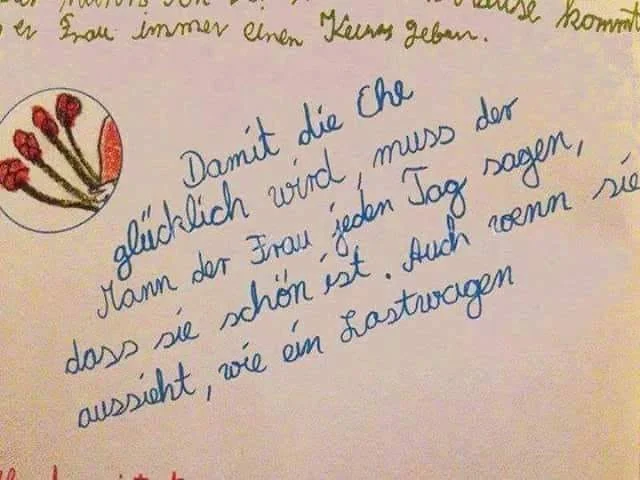 Hause kommt
er Frau immer einen Keuras geban.
Damit die Ehe
glücklich wird, muss der
Mann der Frau jeden Tag sagen,
dass sie schön ist. Auch wenn sie
aussieht, wie ein Lastwagen